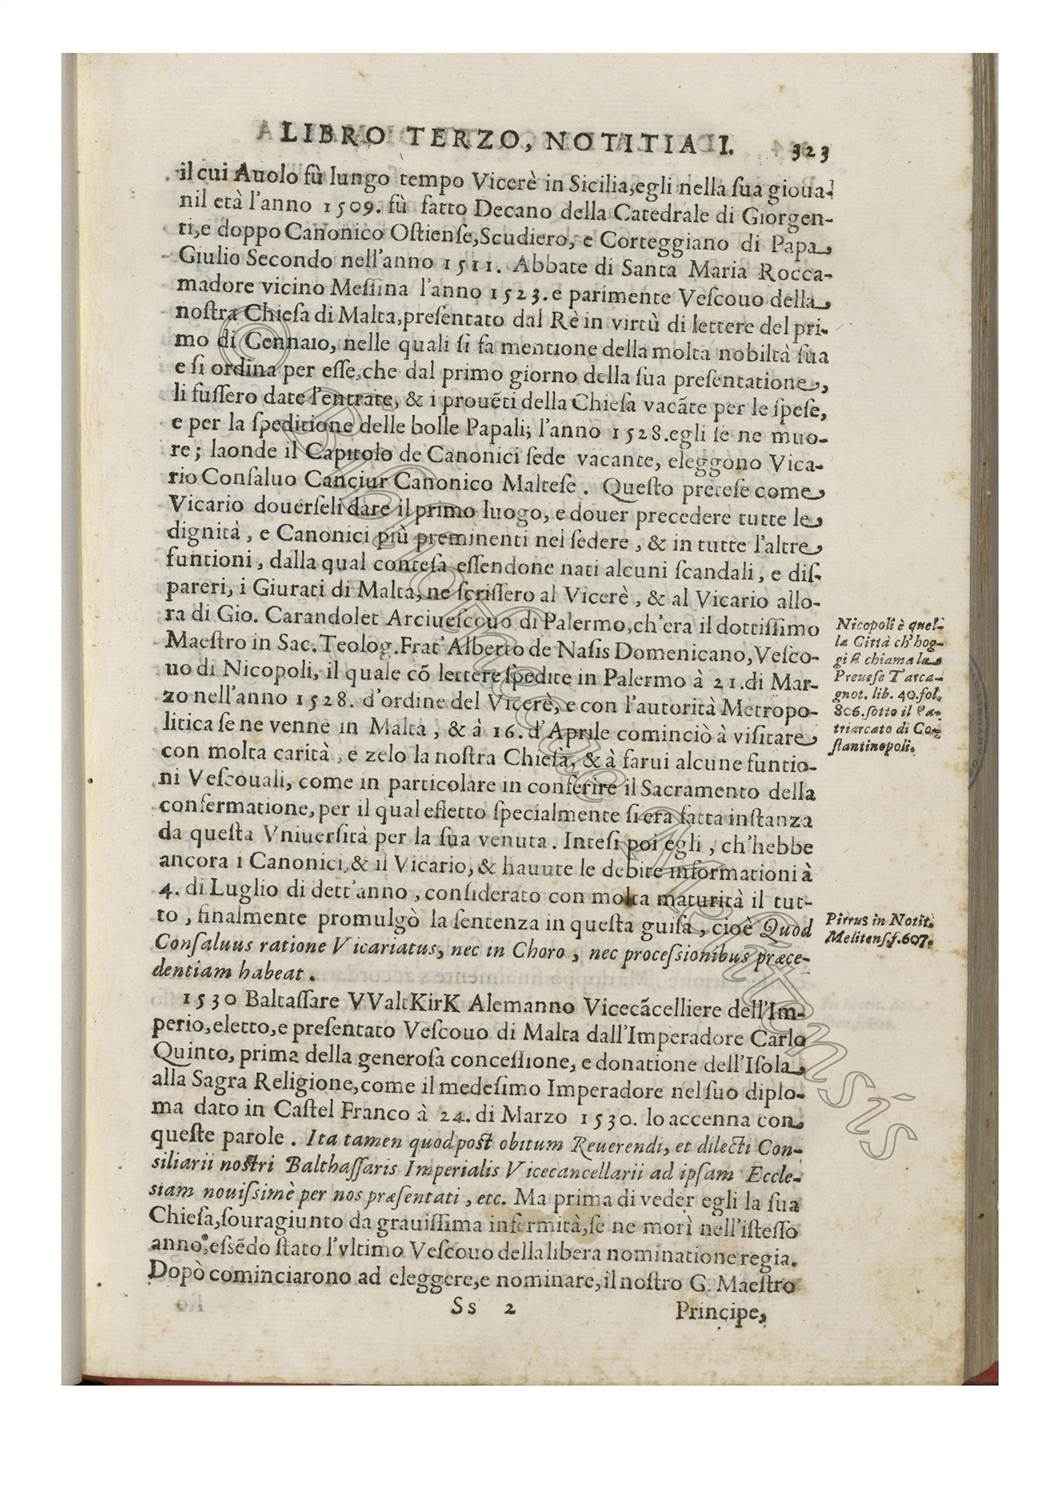 LIBRO TERZO, NOTITIA II. 323
il cui Auolo fù lungo tempo Vicerè in Sicilia, egli nella ſua gioua-
nil età l'anno 1509. fù fatto Decano della Catedrale di Giorgen-
ti, e doppo Canonico Oſtienſe, Scudiero, e Corteggiano di Papa
Giulio Secondo nell'anno 1511. Abbate di Santa Maria Rocca-
madore vicino Meſſina l'anno 1523. e parimente Veſcouo della
noſtra Chieſa di Malta, preſentato dal Rè in virtù di lettere del pri-
mo di Gennaio, nelle quali ſi fa mentione della molta nobiltà ſua
e ſi ordina per eſſe, che dal primo giorno della ſua preſentatione,
li fuſſero date l'entrate, & i prouēti della Chieſa vacāte per le ſpeſe,
e per la ſpeditione delle bolle Papali; l'anno 1528. egli ſe ne muo-
re; laonde il Capitolo de Canonici ſede vacante, eleggono Vica-
rio Conſaluo Canciur Canonico Malteſe. Queſto preteſe come
Vicario douerſeli dare il primo luogo, e douer precedere tutte le
dignità, e Canonici più preminenti nel ſedere, & in tutte l'altre
funtioni, dalla qual conteſa eſſendone nati alcuni ſcandali, e diſ-
pareri, i Giurati di Malta, ne ſcriſſero al Vicerè, & al Vicario allo-
ra di Gio. Carandolet Arciueſcouo di Palermo, ch'era il dottiſſimo
Maeſtro in Sac. Teolog. Frat' Alberto de Naſis Domenicano, Veſco-
uo di Nicopoli, il quale cō lettere ſpedite in Palermo à 21. di Mar-
zo nell'anno 1528. d'ordine del Vicerè, e con l'autorità Metropo-
litica ſe ne venne in Malta, & à 16. d'Aprile cominciò à viſitare
con molta carità, e zelo la noſtra Chieſa, & à farui alcune funtio-
ni Veſcouali, come in particolare in conferire il Sacramento della
confermatione, per il qual effetto ſpecialmente ſi era fatta inſtanza
da queſta Vniuerſità per la ſua venuta. Inteſi poi egli, ch'hebbe
ancora i Canonici, & il Vicario, & hauute le debite informationi à
4. di Luglio di dett'anno, conſiderato con molta maturità il tut-
to, finalmente promulgò la ſentenza in queſta guiſa, cioè Quod
Conſaluus ratione Vicariatus, nec in Choro, nec proceſsionibus præce-
dentiam habeat.
1530 Baltaſſare VValtKirK Alemanno Vicecācelliere dell'Im-
perio, eletto, e preſentato Veſcouo di Malta dall'Imperadore Carlo
Quinto, prima della generoſa conceſſione, e donatione dell'Iſola
alla Sagra Religione, come il medeſimo Imperadore nel ſuo diplo-
ma dato in Caſtel Franco à 24. di Marzo 1530. lo accenna con
queſte parole. Ita tamen quod poſt obitum Reuerendi, et dilecti Con-
siliarii noſtri Balthaſſaris Imperialis Vicecancellarii ad ipſam Eccle-
siam nouiſsimè per nos præſentati, etc. Ma prima di veder egli la ſua
Chieſa, ſouragiunto da grauiſſima infermità, ſe ne morì nell'iſteſſo
anno: eſsēdo ſtato l'vltimo Veſcouo della libera nominatione regia.
Dopò cominciarono ad eleggere, e nominare, il noſtro G. Maeſtro
Ss 2 Principe,
Nicopoli è quel-
la Città ch'hog-
gi ſi chiama la
Preueſe Tarca-
gnot. lib. 40. fol.
806. ſotto il Pa-
triarcato di Co-
ſtantinopoli.
Pirrus in Notit.
Melitenſ. f. 607.